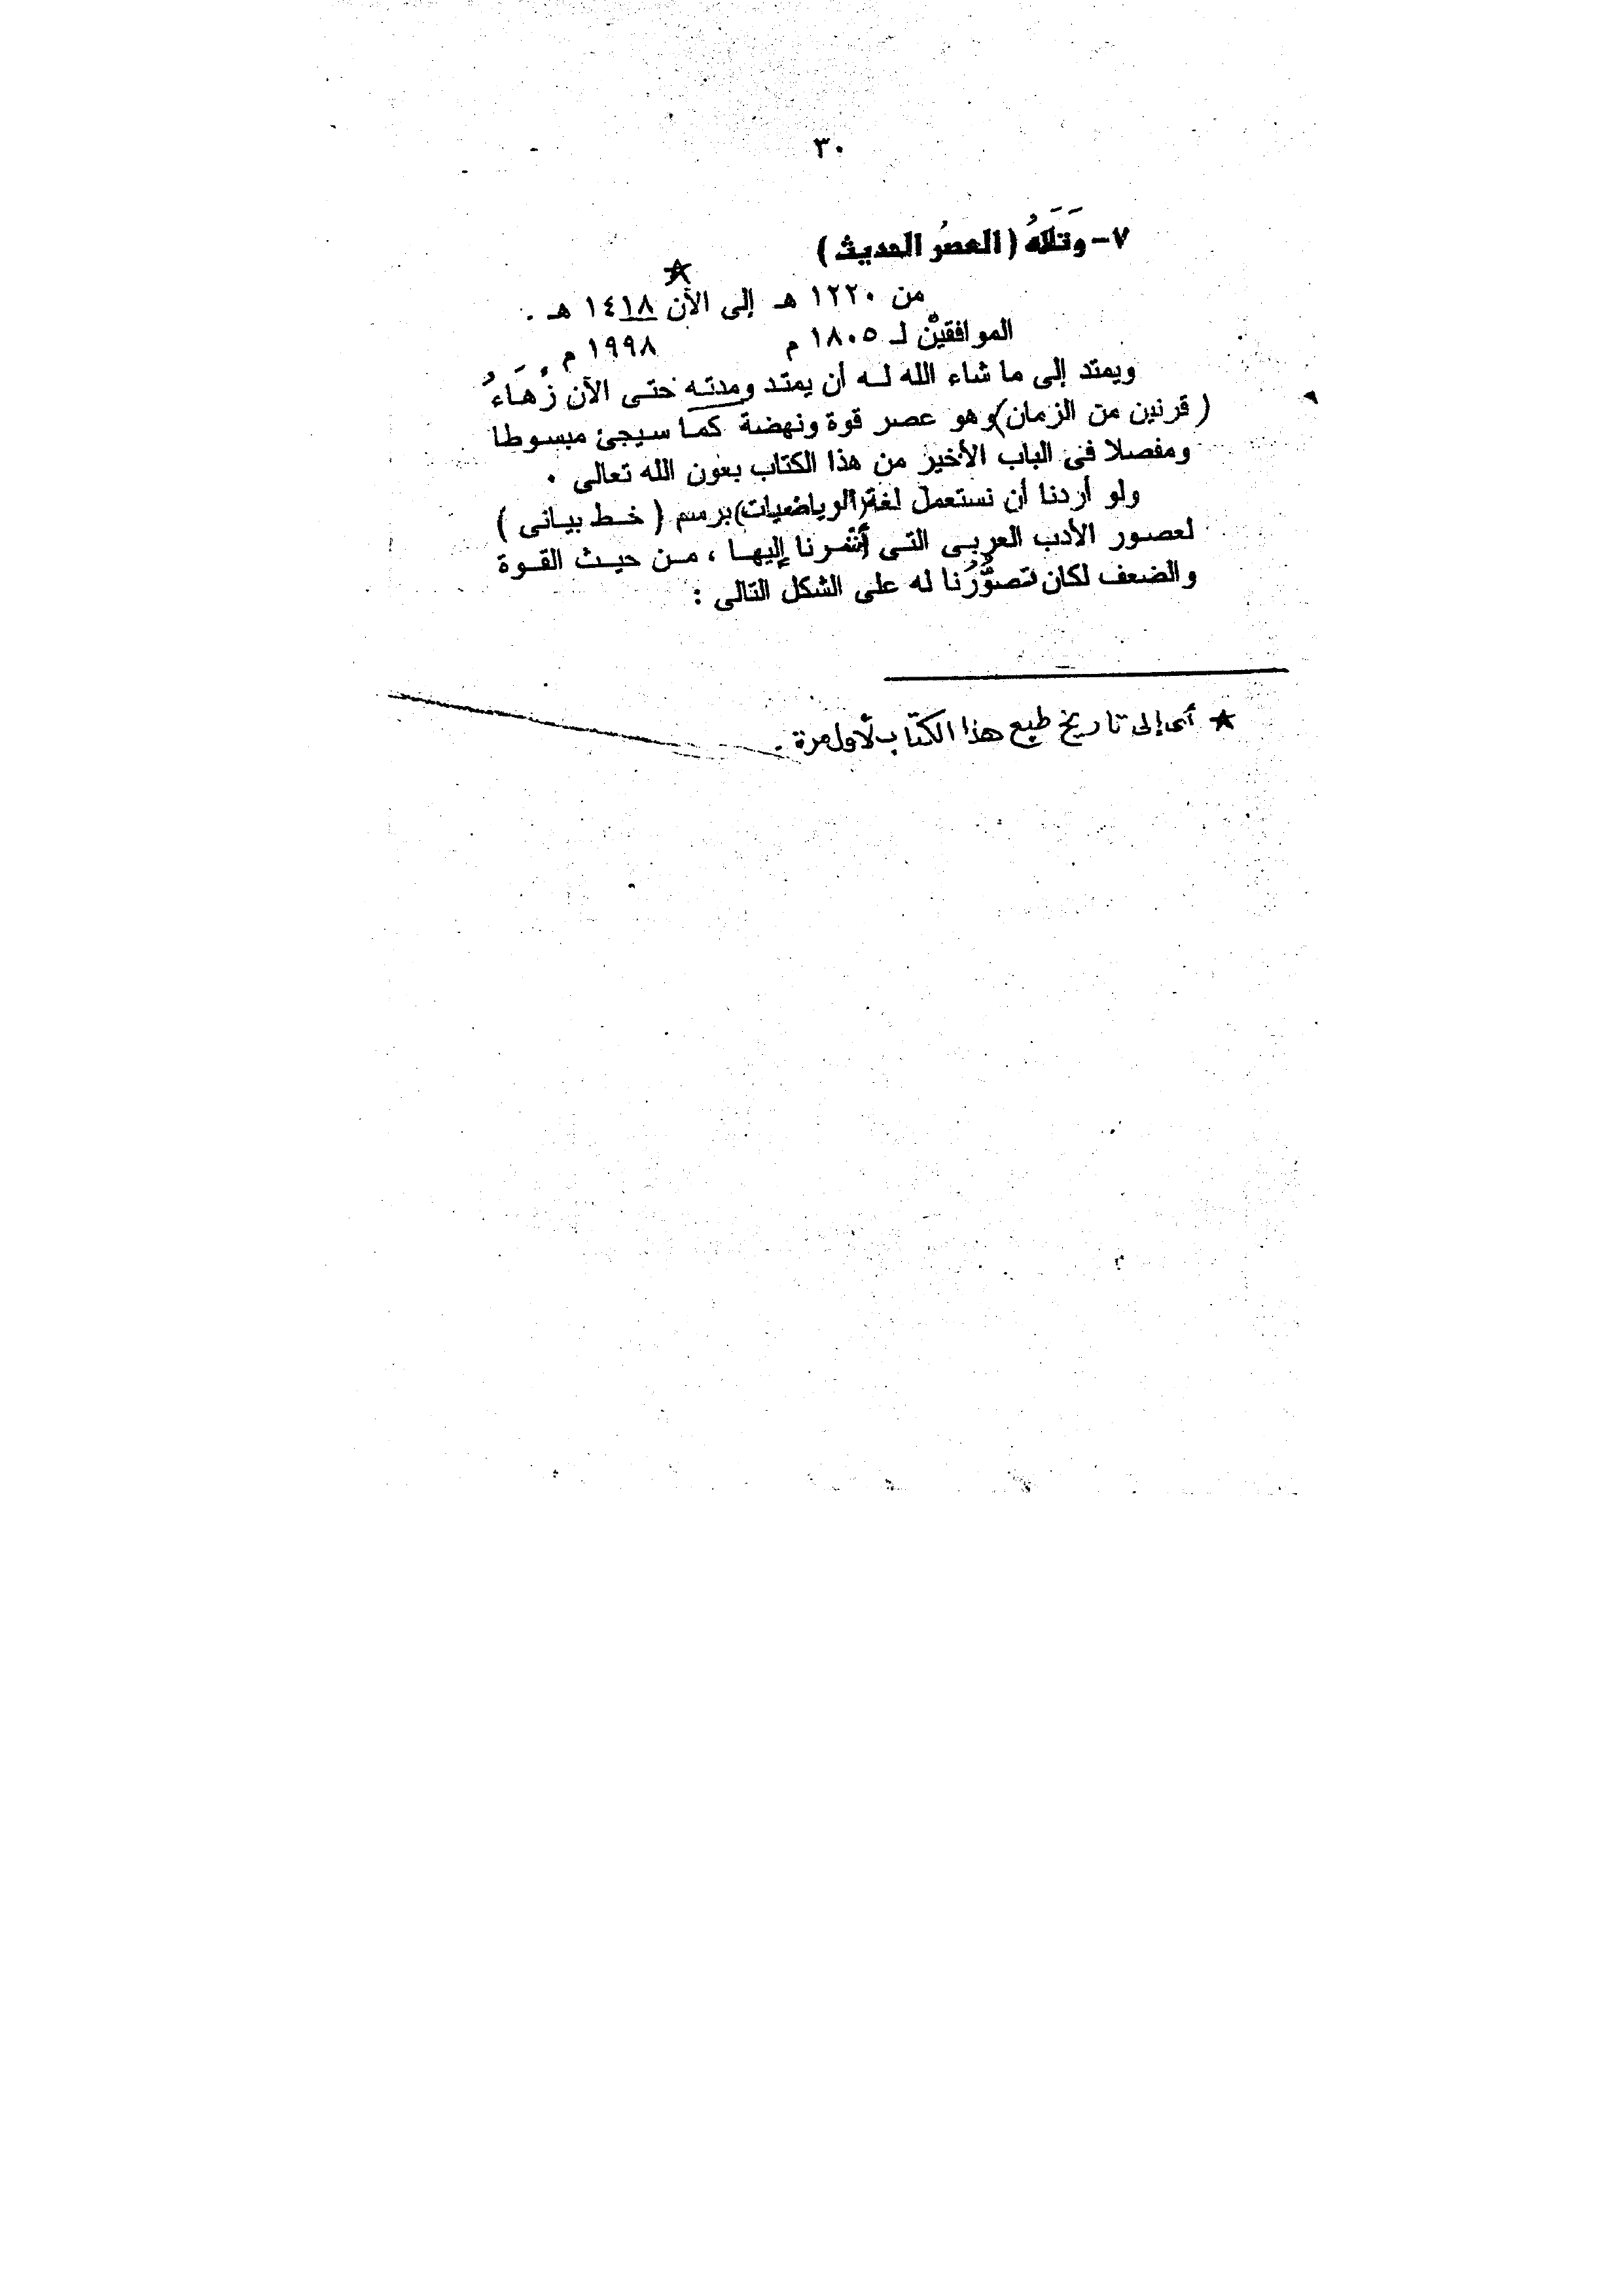 ٣٠
٧- وَتَلَاهُ ( العصرُ الحديث )
من ١٢٢٠ هـ إلى الآن ☆ ١٤١٨ هـ .
الموافقيْن لـ ١٨٠٥ م ١٩٩٨ م
ويمتد إلى ما شاء الله لـه أن يمتد ومدتـه حتـى الآن زُهَـاءُ
( قرنين من الزمان ) وهو عصر قوة ونهضة كمـا سـيجئ مبسـوطا
ومفصلا فى الباب الأخير من هذا الكتاب بعون الله تعالى .
ولو أردنا أن نستعمل لغة ( الرياضيات ) برسم ( خـط بيـانى )
لعصـور الأدب العربـى التـى أَشَـرنا إليهـا ، مـن حيـث القـوة
والضعف لكان تصوُّرُنا له على الشكل التالى :
☆ أى إلى تاريخ طبع هذا الكتاب لأول مرة .